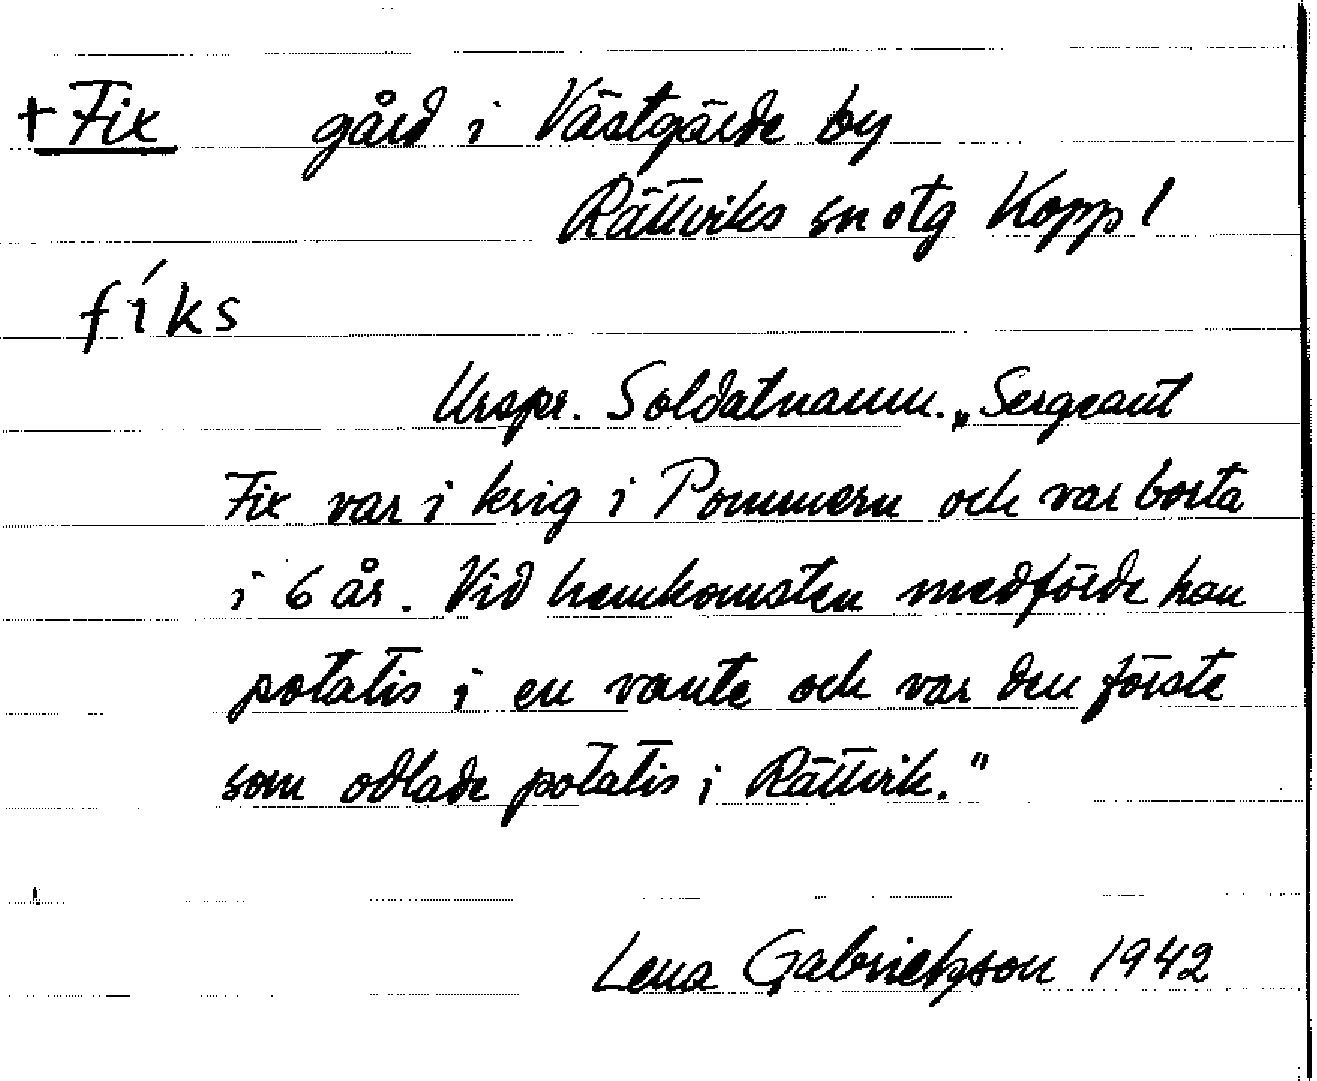 + Fix gård i Västgärde by
Rättviks sn otg Kopp l
fíks
Urspr. Soldatnamn. „Sergeant
Fix var i krig i Pommern och var borta
i 6 år. Vid hemkomsten medförde han
potatis i en vante och var den förste
som odlade potatis i Rättvik."
Lena Gabrielsson 1942